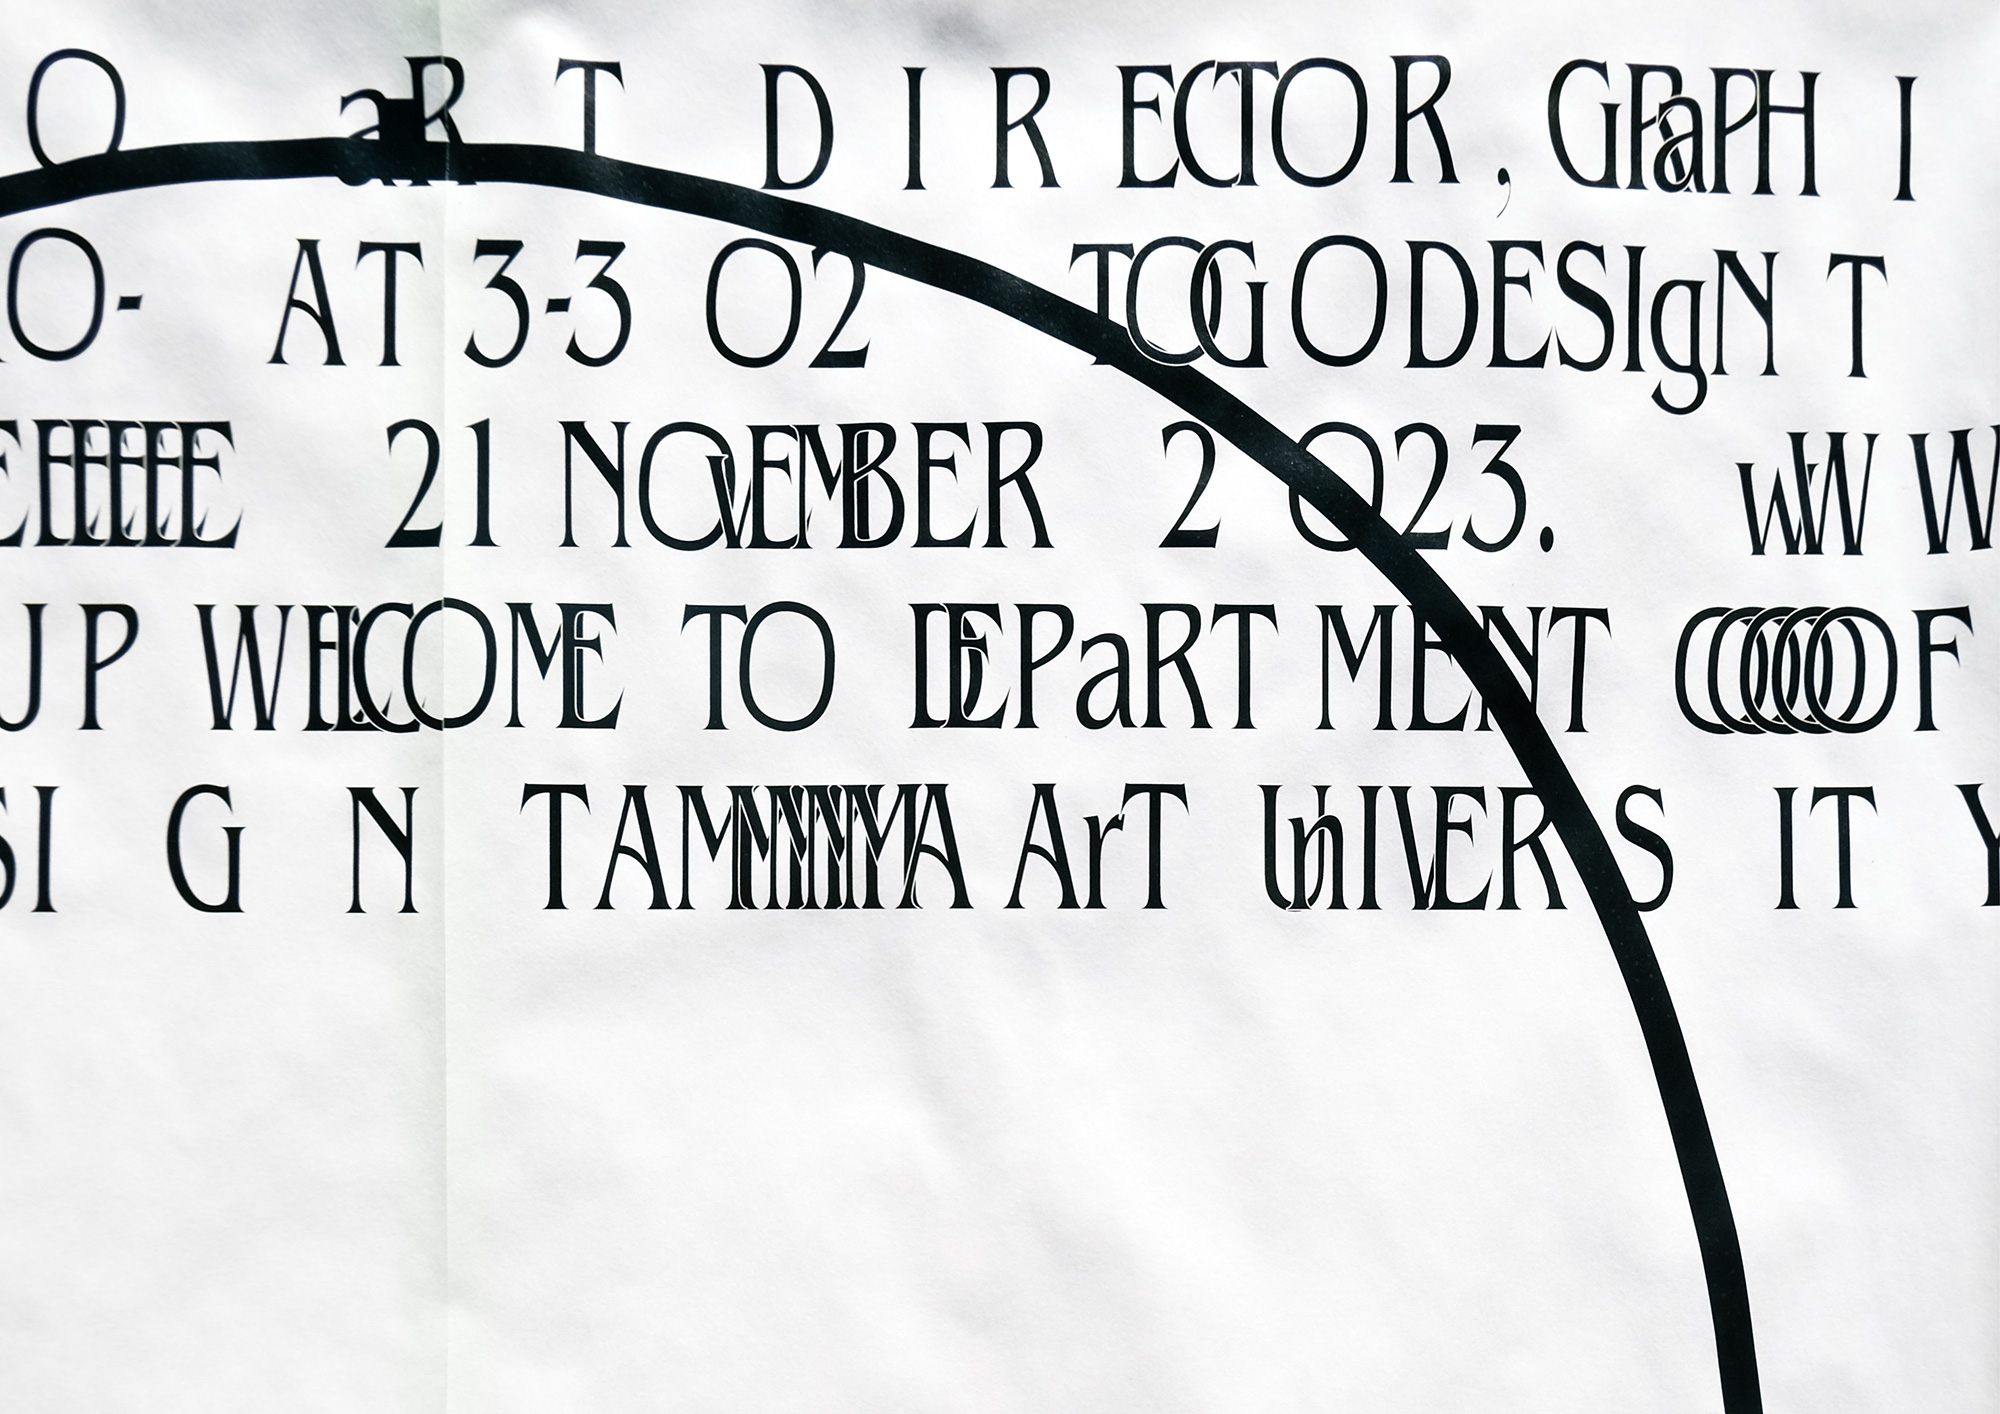 O aRT DIRECTOR, GRaPHI
O- AT 3-302 TOGODESIgN T
EEEEEE 21 NOvEMBER 2023. wWW
UP WELCOME TO DEPaRTMENT OOOOOF
SIGN TAMMMMMA ArT UnIVERSITY